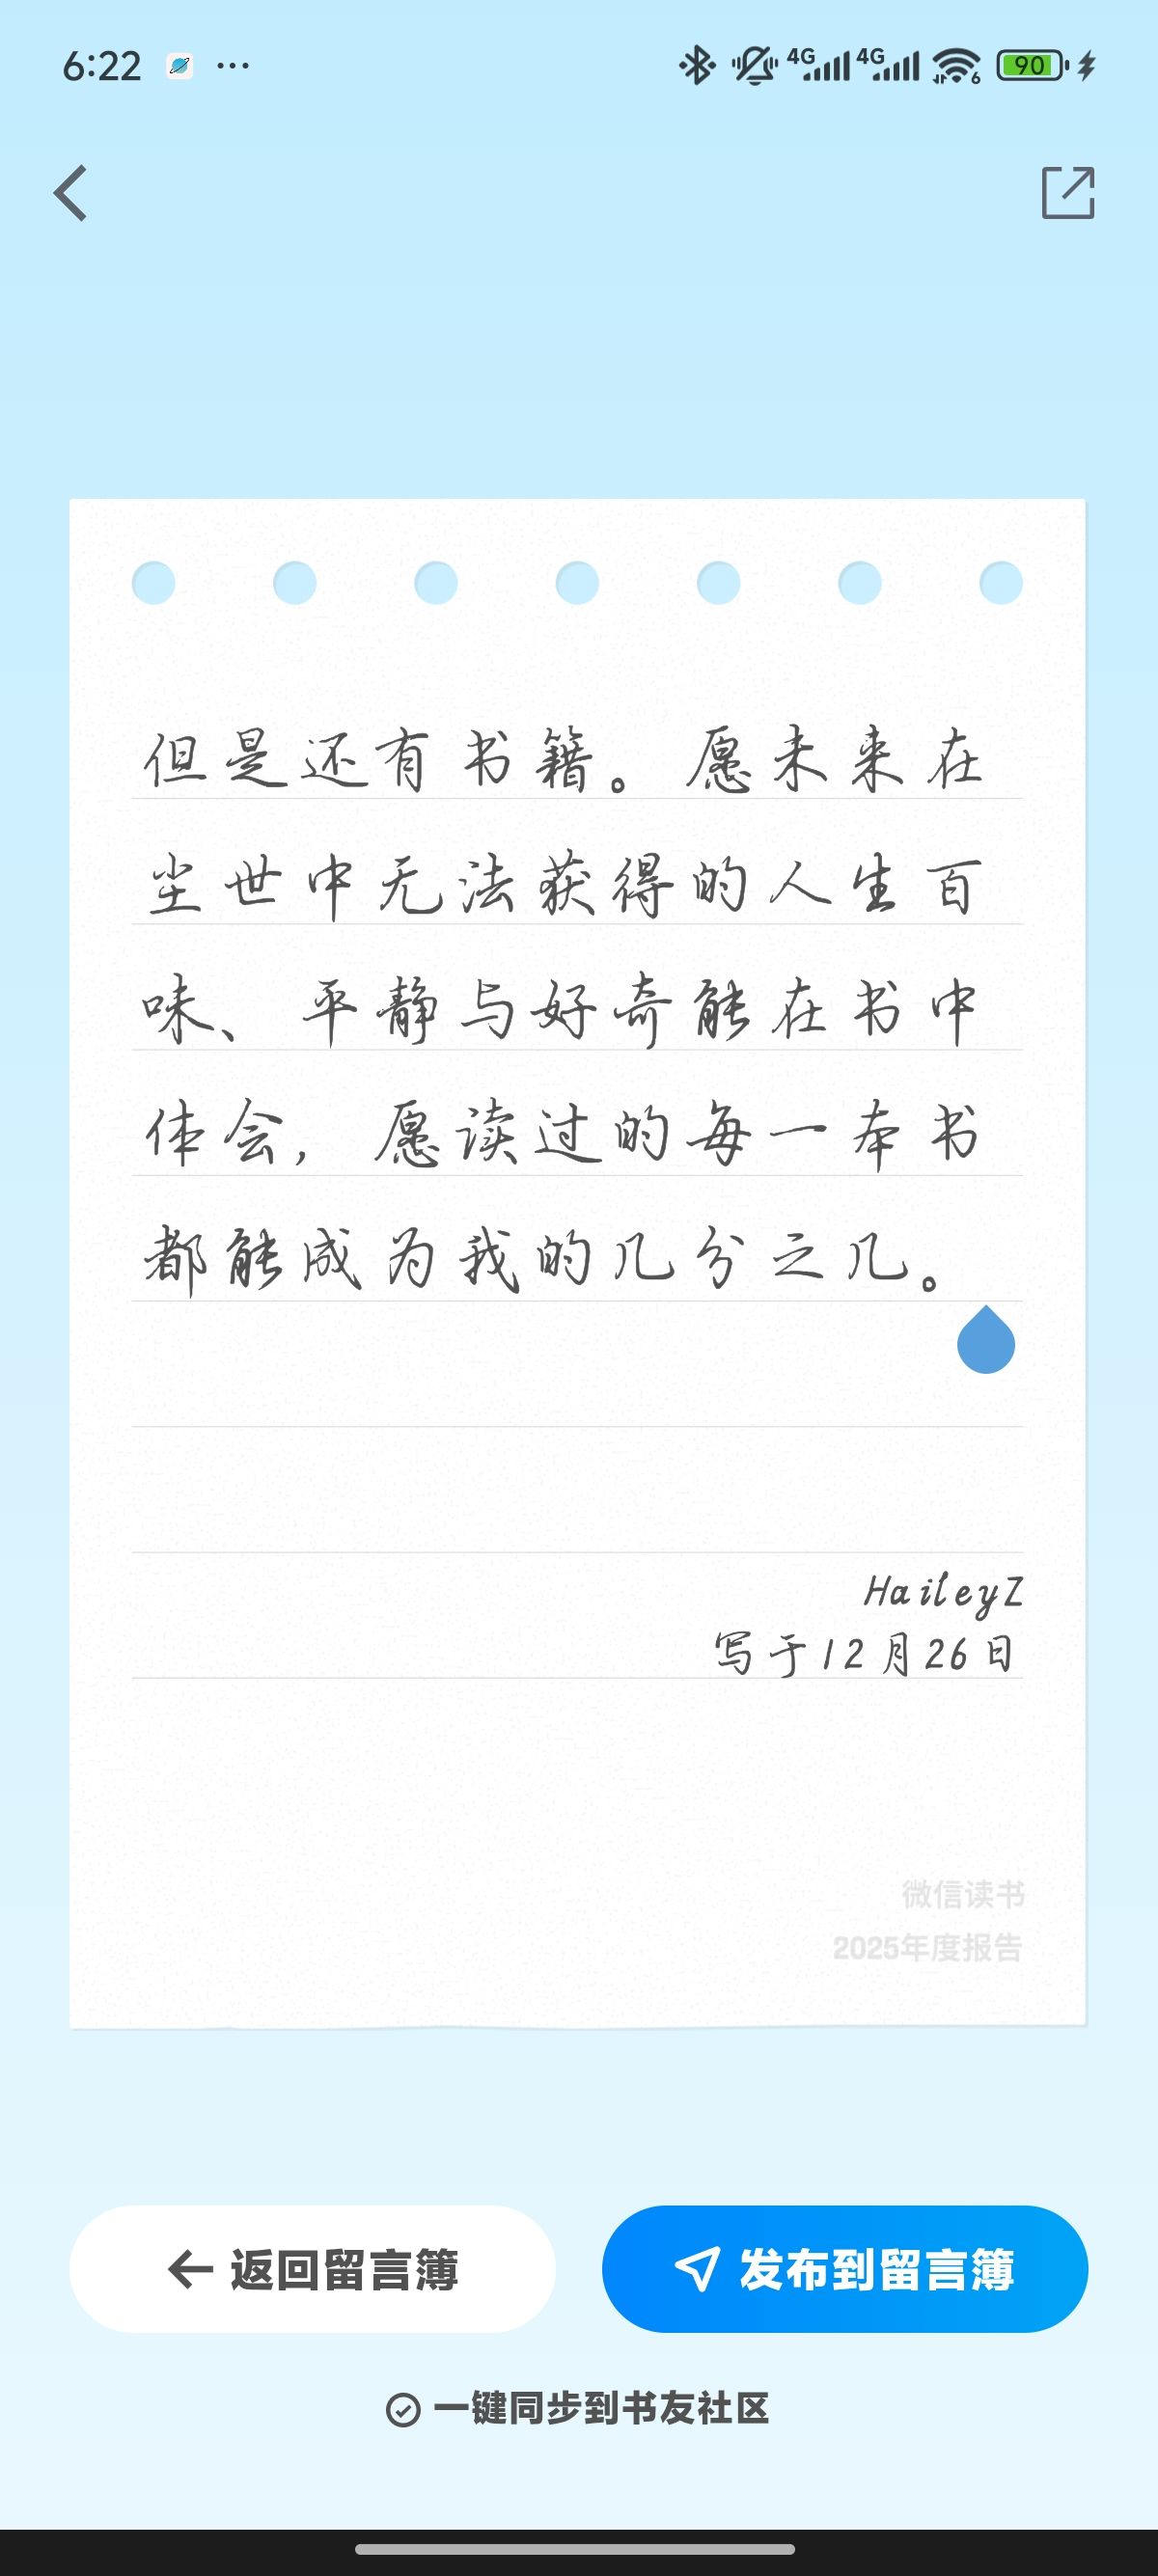 6:22 ... 4G 4G 6 90
但是还有书籍。愿未来在
尘世中无法获得的人生百
味、平静与好奇能在书中
体会,愿读过的每一本书
都能成为我的几分之几。
HaileyZ
写于12月26日
微信读书
2025年度报告
返回留言簿 发布到留言簿
一键同步到书友社区